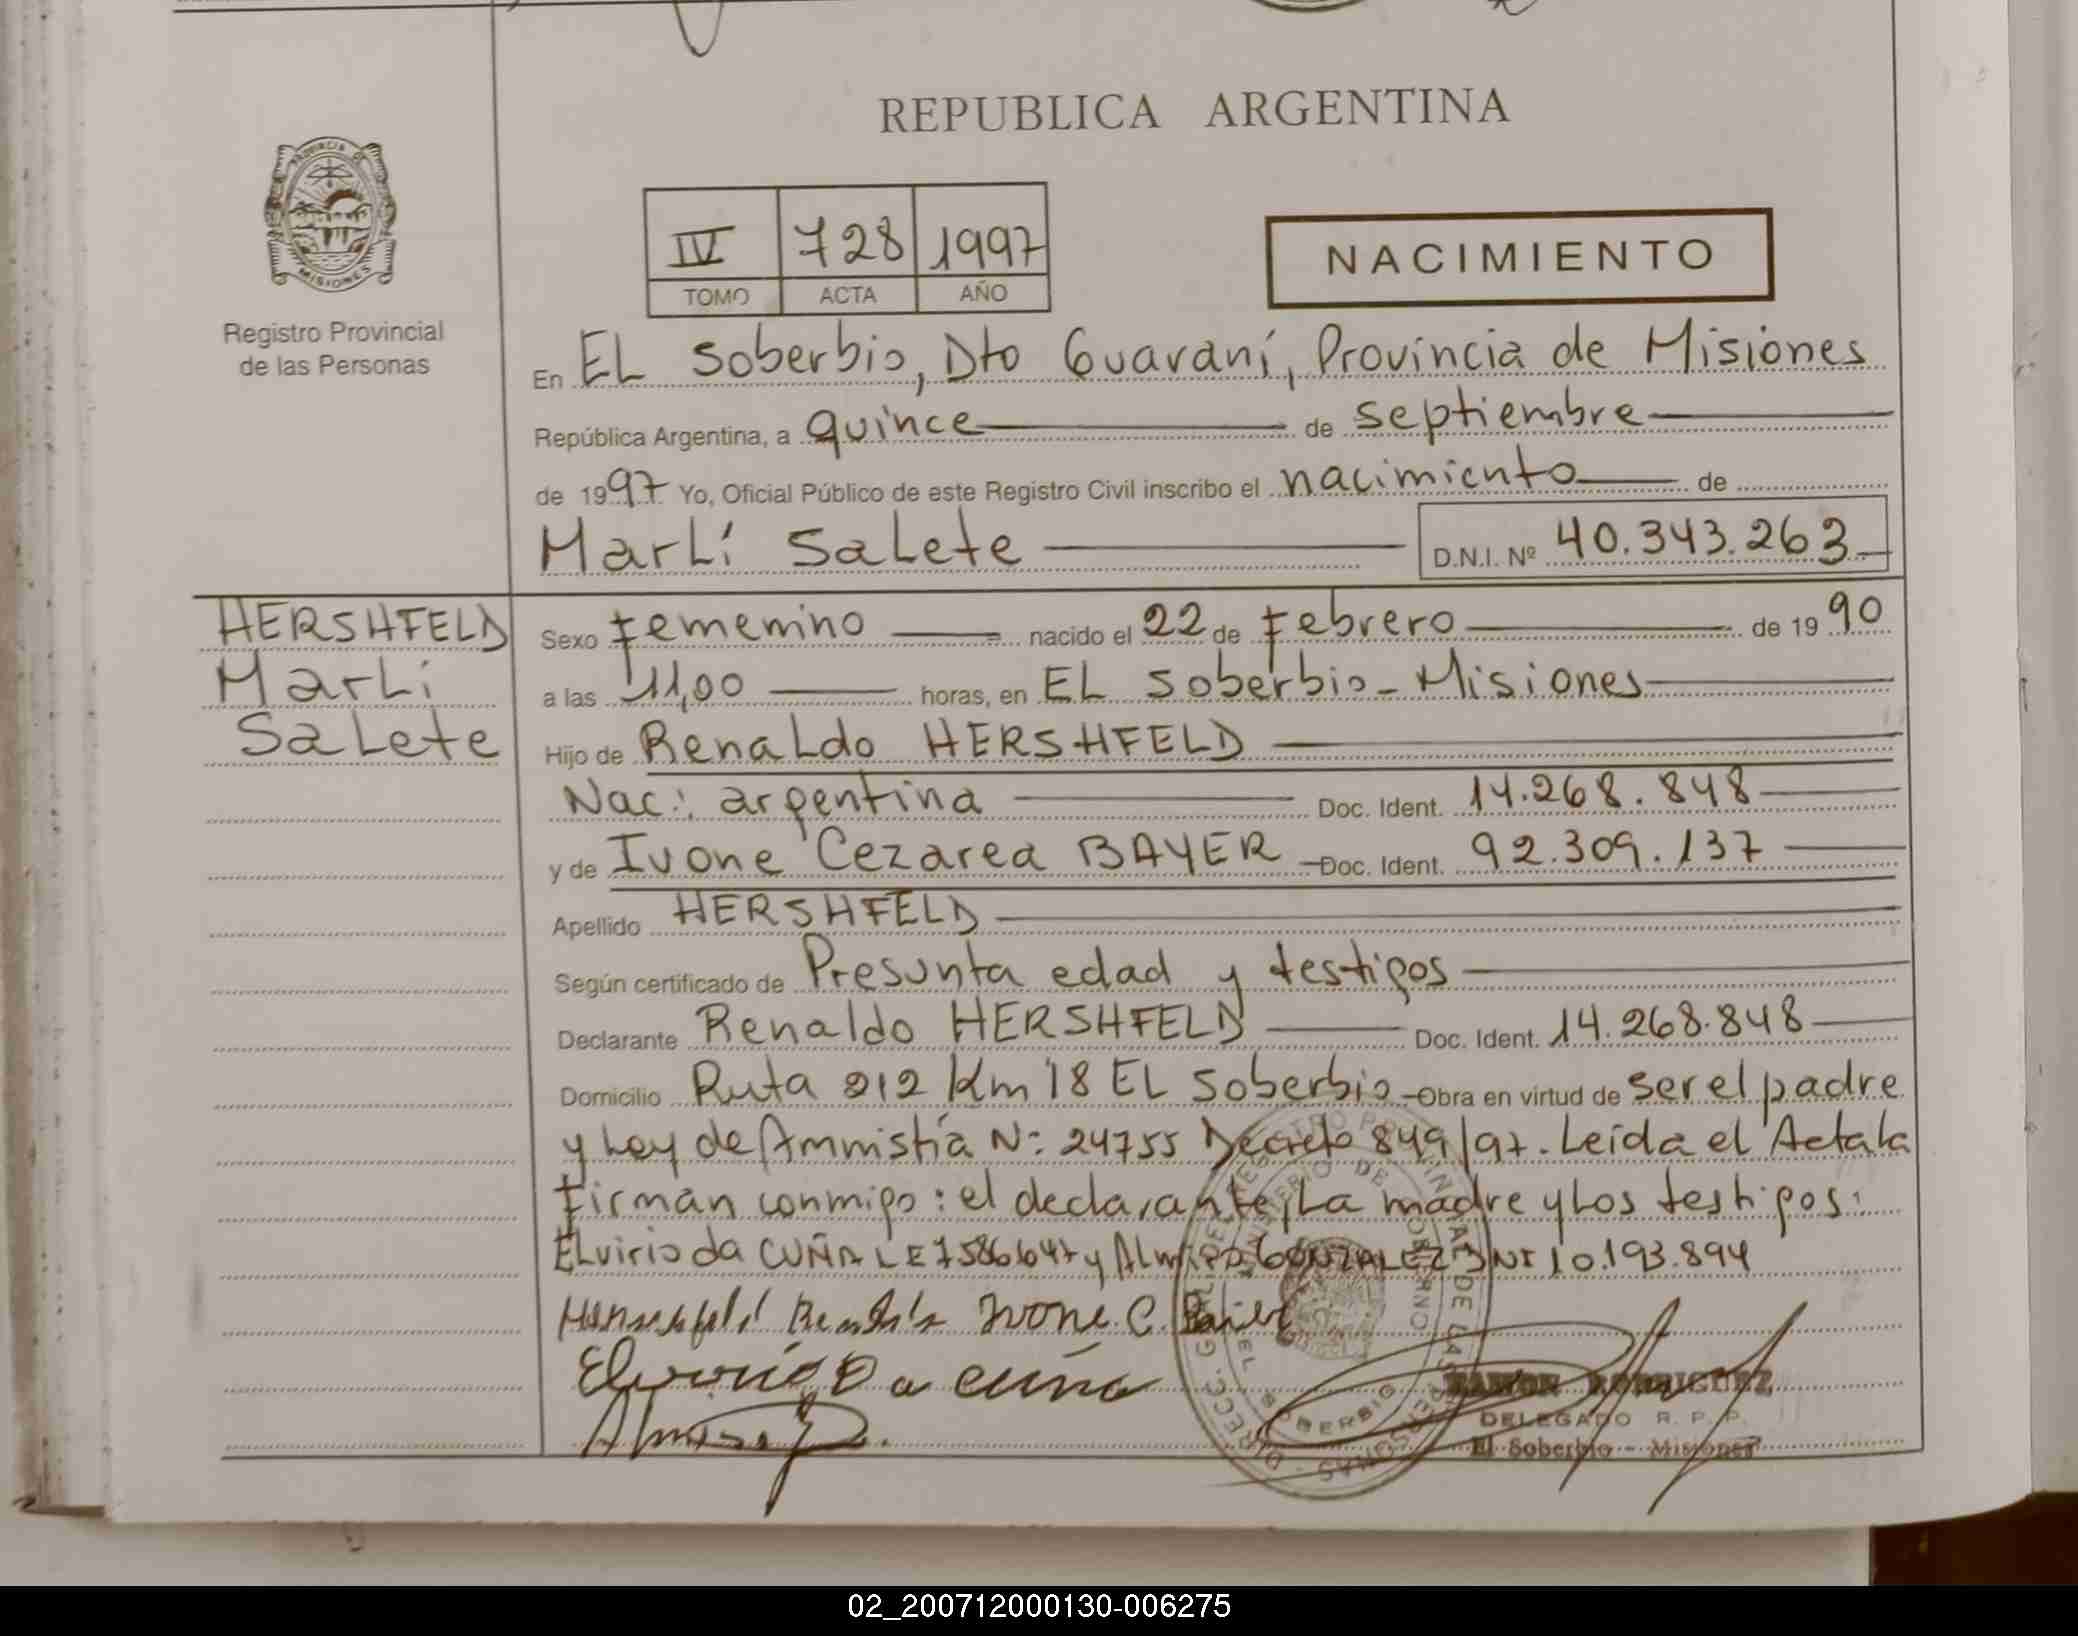 REPUBLICA ARGENTINA
PROVINCIA DE
MISIONES
Registro Provincial
de las Personas
IV 728 1997
TOMO ACTA AÑO
NACIMIENTO
En EL Soberbio, Dto Guaraní, Provincia de Misiones
República Argentina, a quince de septiembre
de 1997 Yo, Oficial Público de este Registro Civil inscribo el nacimiento de
Marlí Salete D.N.I. Nº 40.343.263
HERSHFELD
Marli
Salete
Sexo femenino nacido el 22 de febrero de 1990
a las 11,00 horas, en EL Soberbio - Misiones
Hijo de Renaldo HERSHFELD
Nac: argentina Doc. Ident. 14.268.848
y de Ivone Cezarea BAYER Doc. Ident. 92.309.137
Apellido HERSHFELD
Según certificado de Presunta edad y testigos
Declarante Renaldo HERSHFELD Doc. Ident. 14.268.848
Domicilio Ruta 212 Km 18 EL Soberbio Obra en virtud de ser el padre
y Ley de Amnistía N: 24755 Decreto 849/97. Leída el Acta la
firman conmigo: el declarante, La madre y Los testigos:
ELvirio da CUÑA LE 7586647 y GONZALEZ DNI 10.193.894
Ivone C.
Da cuña
RAMON RODRIGUEZ
DELEGADO R. P. P.
El Soberbio - Misiones
02_200712000130-006275